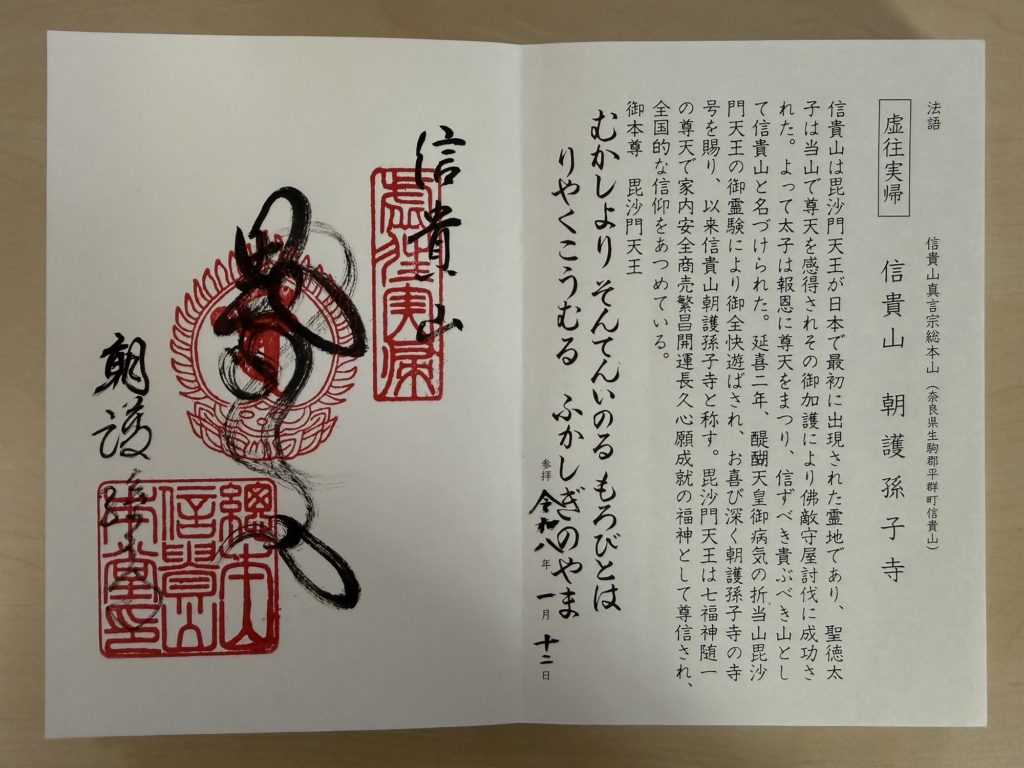 法語
虚往実帰
信貴山真言宗総本山（奈良県生駒郡平群町信貴山）
信貴山 朝護孫子寺
信貴山は毘沙門天王が日本で最初に出現された霊地であり、聖徳太
子は当山で尊天を感得されその御加護により佛敵守屋討伐に成功さ
れた。よって太子は報恩に尊天をまつり、信ずべき貴ぶべき山とし
て信貴山と名づけられた。延喜二年、醍醐天皇御病気の折当山毘沙
門天王の御霊験により御全快遊ばされ、お喜び深く朝護孫子寺の寺
号を賜り、以来信貴山朝護孫子寺と称す。毘沙門天王は七福神随一
の尊天で家内安全商売繁昌開運長久心願成就の福神として尊信され、
全国的な信仰をあつめている。
御本尊 毘沙門天王
むかしより そんてんいのる もろびとは
りやくこうむる ふかしぎのやま
参拝 令和八年 一月 十二日
虚往実帰
信貴山
朝護孫子寺
總本山
信貴山
本堂印